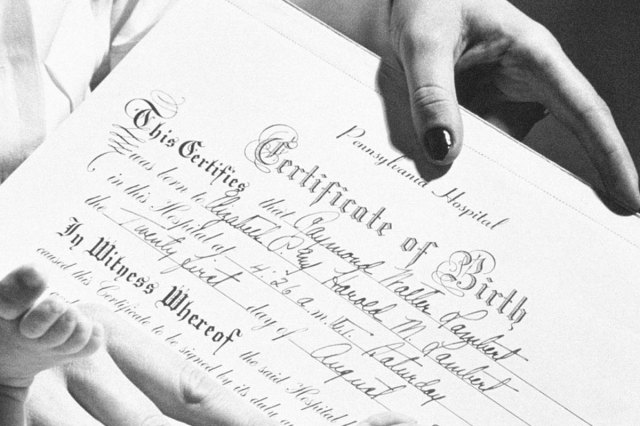 Pennsylvania Hospital
Certificate of Birth
This Certifies that Raymond Walter Lambert
was born to Elizabeth Harold M. Lambert
in this Hospital at 4:26 a.m. Saturday
the Twenty first day of August
In Witness Whereof the said Hospital
caused this Certificate to be signed by its duly